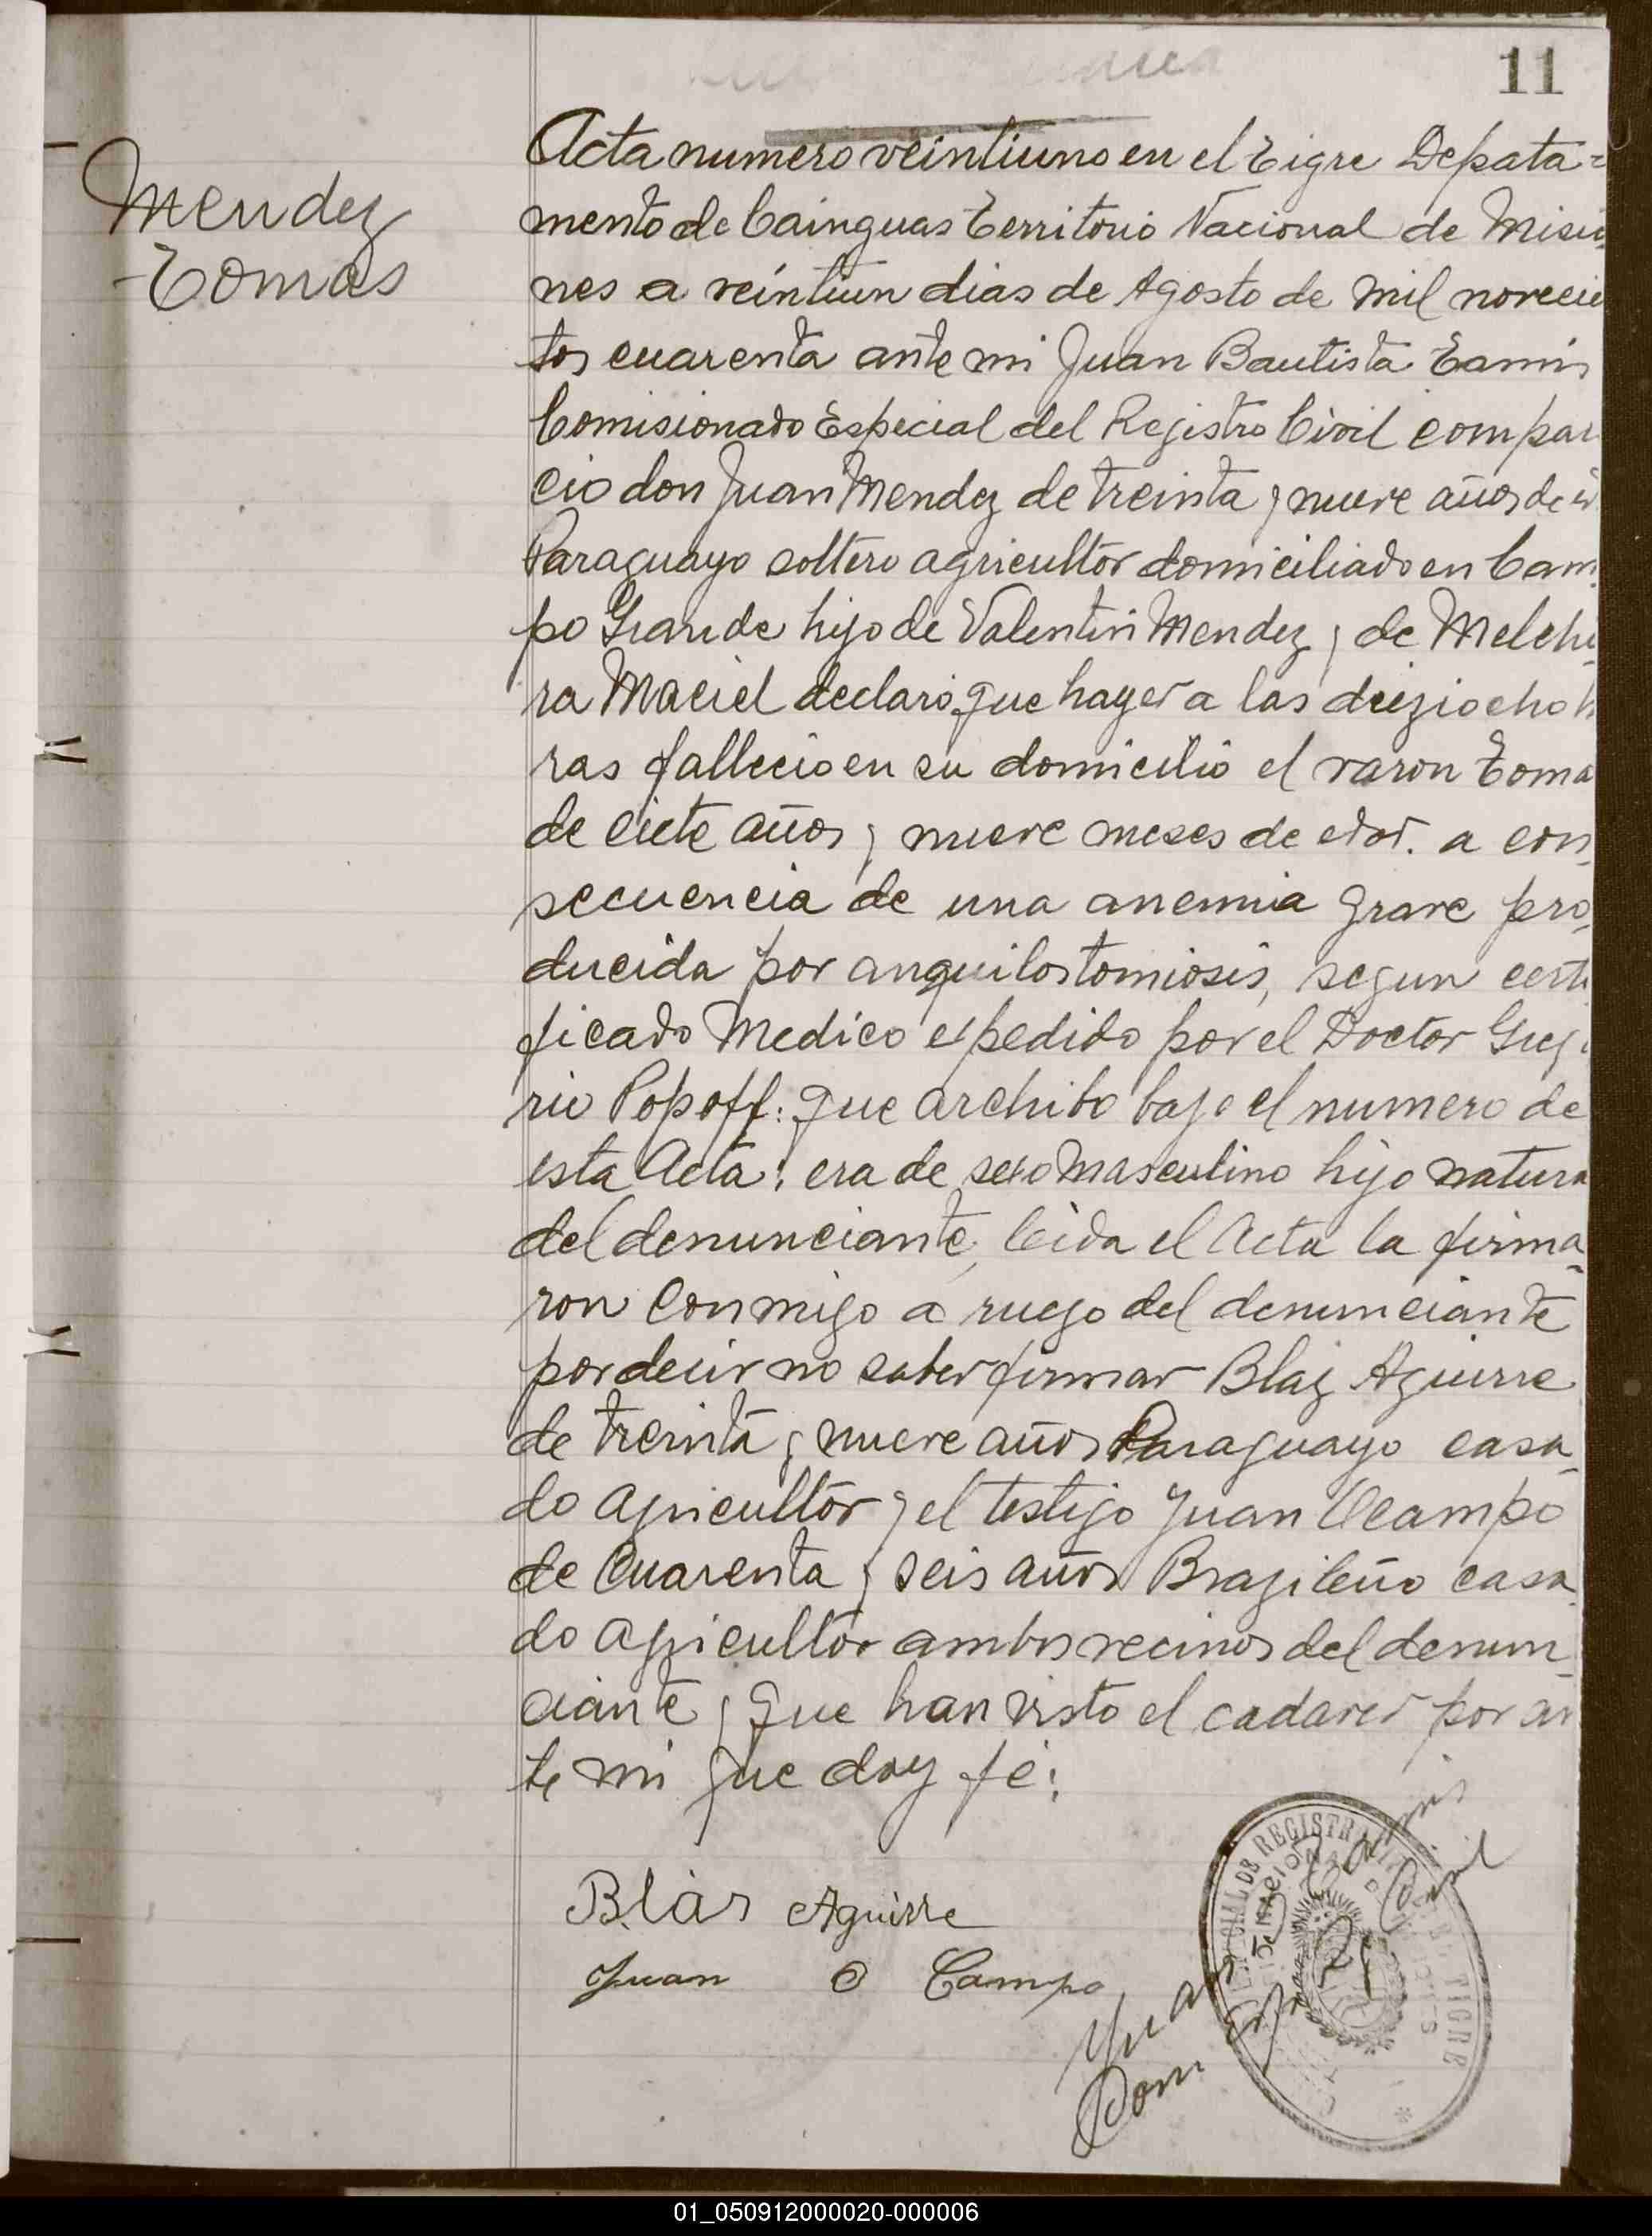 11
Mendez
Tomas
Acta numero veintiuno en el Tigre Depata=
mento de Cainguas Territorio Nacional de Misio
nes a veintiun dias de Agosto de mil novecie
tos cuarenta ante mi Juan Bautista
Comisionado Especial del Registro Civil compar
cio don Juan Mendez de treinta y nueve años de
Paraguayo soltero agricultor domiciliado en Cam
po Grande hijo de Valentin Mendez y de Melcho
ra Maciel declaro que hayer a las dieziocho h
ras fallecio en su domicilio el varon Toma
de ciete años y nueve meses de edad. a con
secuencia de una anemia grave pro
ducida por anquilostomiosis, segun certi
ficado Medico expedido por el Doctor Grego
rio Popoff: que archibo bajo el numero de
esta Acta: era de sexo masculino hijo natura
del denunciante, leida el Acta la firma
ron conmigo a ruego del denunciante
por decir no saber firmar Blaz Aguirre
de treinta y nueve años Paraguayo casa
do agricultor y el testigo Juan Ocampo
de Cuarenta y seis años Brazileño casa
do agricultor ambos vecinos del denun
ciante y que han visto el cadaver por an
te mi que doy fé:
Blas Aguirre
Juan O Campo
Juan
REGISTR
TIGRE
01_050912000020-000006